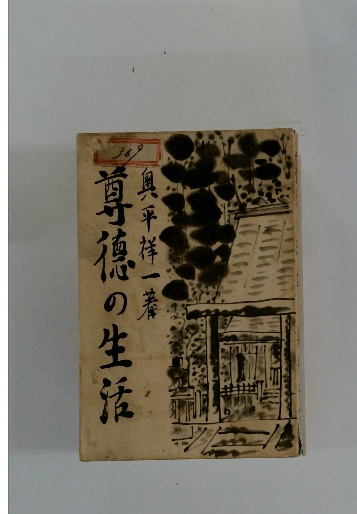 369
奥平祥一著
尊徳の生活